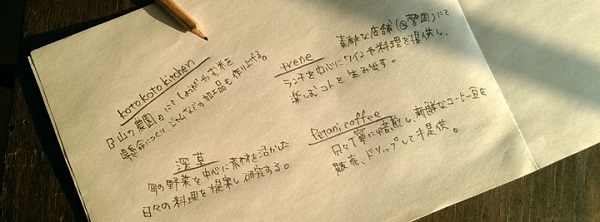 kotokoto kitchen
日山の農園カにて しょうがやお米を
懸命につくり ごはんなどの加工品も作り上げる。
trene
素敵な店舗(@ 誉田)にて
ランチを中心にワインや料理を提供し、
楽しむコトを生み出す。
深草
旬の野菜を中心に素材を活かした
日々の料理を提案し研究する。
Petani coffee
日々丁寧に焙煎し、新鮮なコーヒー豆を
販売、ドリップして提供。